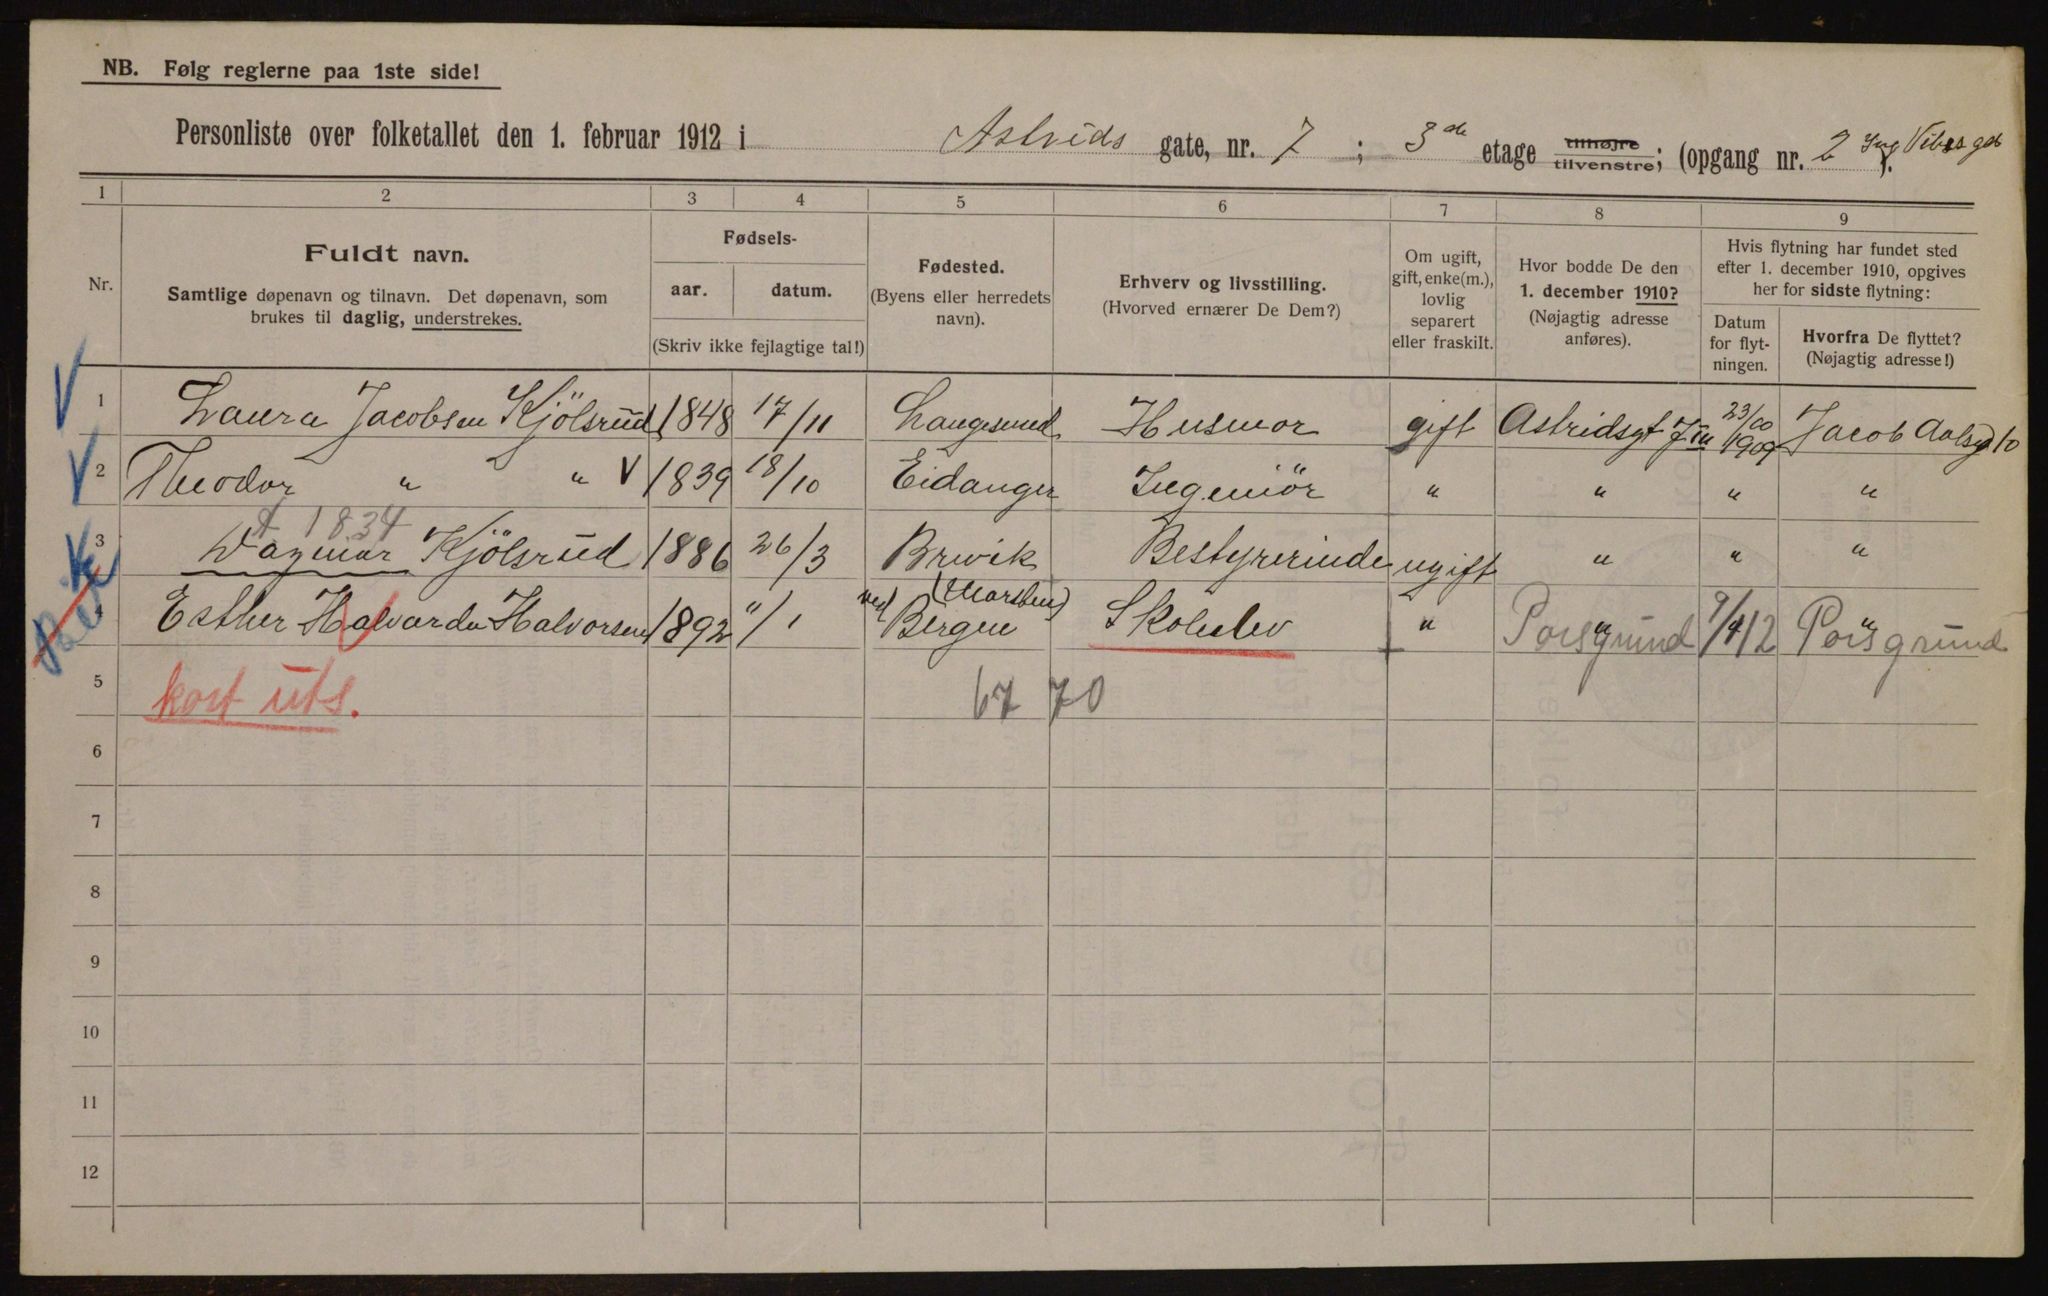 NB. Følg reglerne paa 1ste side!
Personliste over folketallet den 1. februar 1912 i Astrids gate, nr. 7 ; 3 de etage tilhøjre tilvenstre; (opgang nr. 2 ).
1 2 3 4 5 6 7 8 9
Nr.
Fuldt navn.
Samtlige døpenavn og tilnavn. Det døpenavn, som
brukes til daglig, understrekes.
Fødsels-
aar. datum.
(Skriv ikke fejlagtige tal!)
Fødested.
(Byens eller herredets
navn).
Erhverv og livsstilling.
(Hvorved ernærer De Dem?)
Om ugift,
gift, enke(m.),
lovlig
separert
eller fraskilt.
Hvor bodde De den
1. december 1910?
(Nøjagtig adresse
anføres).
Hvis flytning har fundet sted
efter 1. december 1910, opgives
her for sidste flytning:
Datum
for flyt-
ningen.
Hvorfra De flyttet?
(Nøjagtig adresse!)
1 Laura Jacobsen Kjölsrud 1848 17/11 Langesund Husmor gift Astridsgt 7 III 23/10 1909 Jacob Aalsgd 10
2 Theodor " " V 1839 18/10 Eidanger Ingeniör " " " "
1834
3 Dagmar Kjölsrud 1886 26/3 Brevik Bestyrerinde ugift " " "
4 Esther Halvarda Halvorsen 1892 "/1 ved Bergen Skoleelev " " Porsgrund 9/4 12 " Porsgrund
5 kost uts. 67 70
6
7
8
9
10
11
12